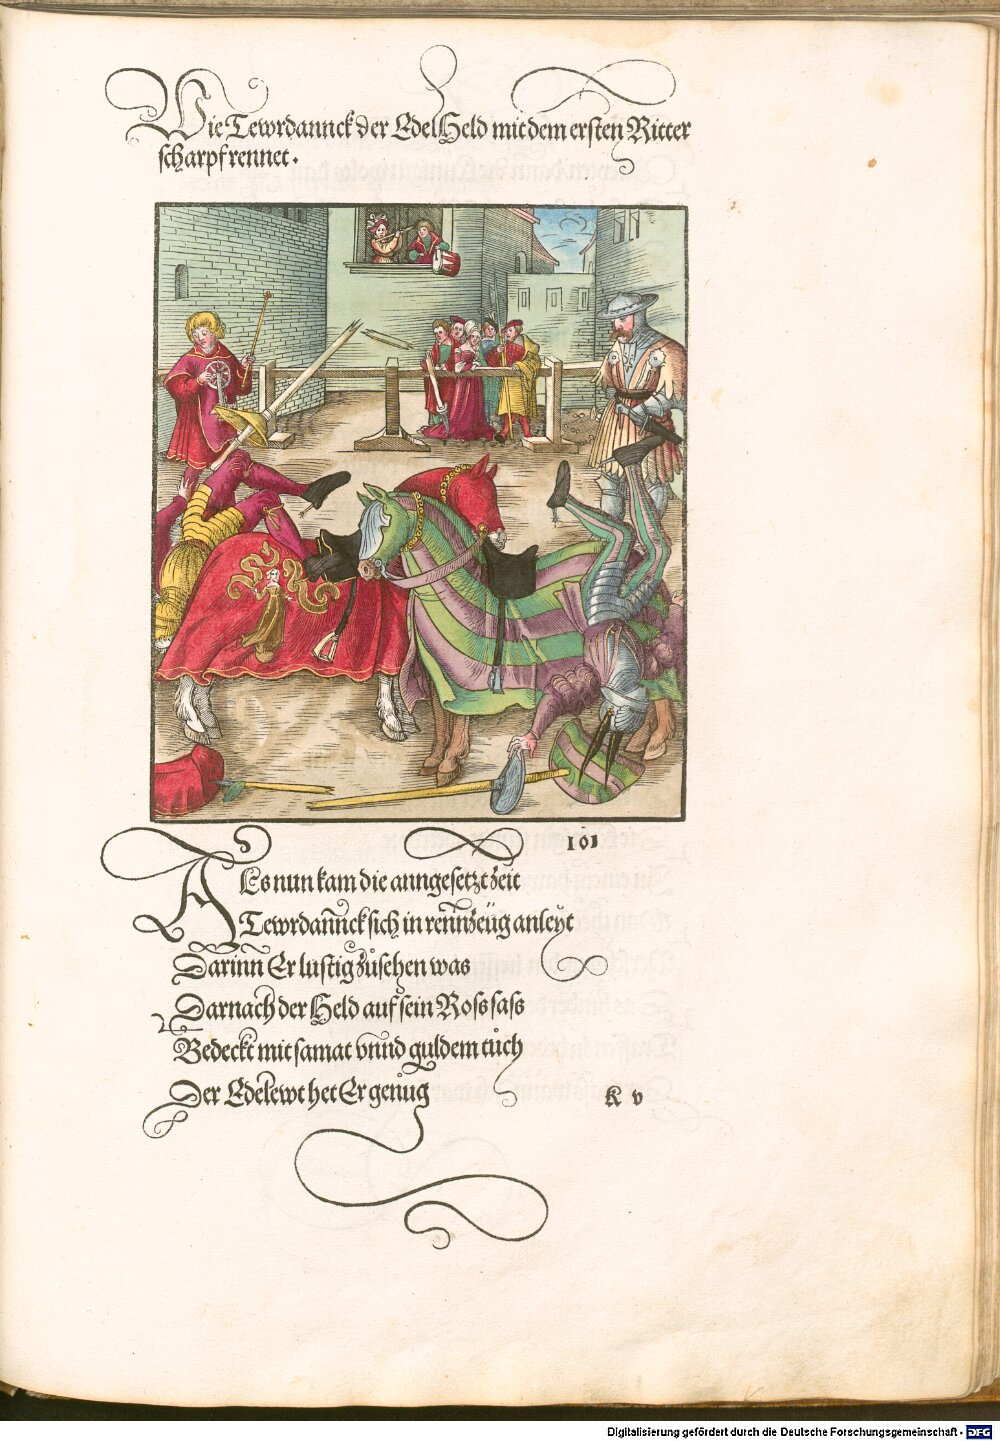 Wie Tewrdannck der Edel Held mit dem ersten Ritter
scharpf rennet.
101
Als nun kam die anngesetzt zeit
Tewrdannck sich in rennzeüg anleyt
Darinn Er lustig zůsehen was
Darnach der Held auf sein Ross sass
Bedeckt mit samat vnnd guldem tůch
Der Edelewt het Er genůg
K v
Digitalisierung gefördert durch die Deutsche Forschungsgemeinschaft - DFG